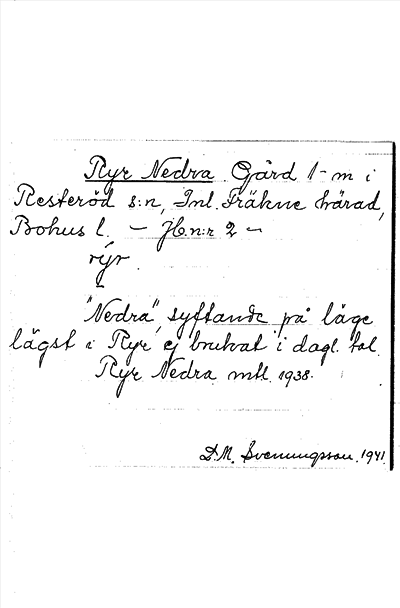 Ryr Nedra. Gård 1- m i
Resteröd s:n, Inl. Fräkne härad,
Bohus l. – Jb.n:r 2 –
rýr.
"Nedra", syftande på läge
lägst i Ryr, ej brukat i dagl. tal.
Ryr Nedra mtl. 1938.
D.M. Svenungsson. 1941.